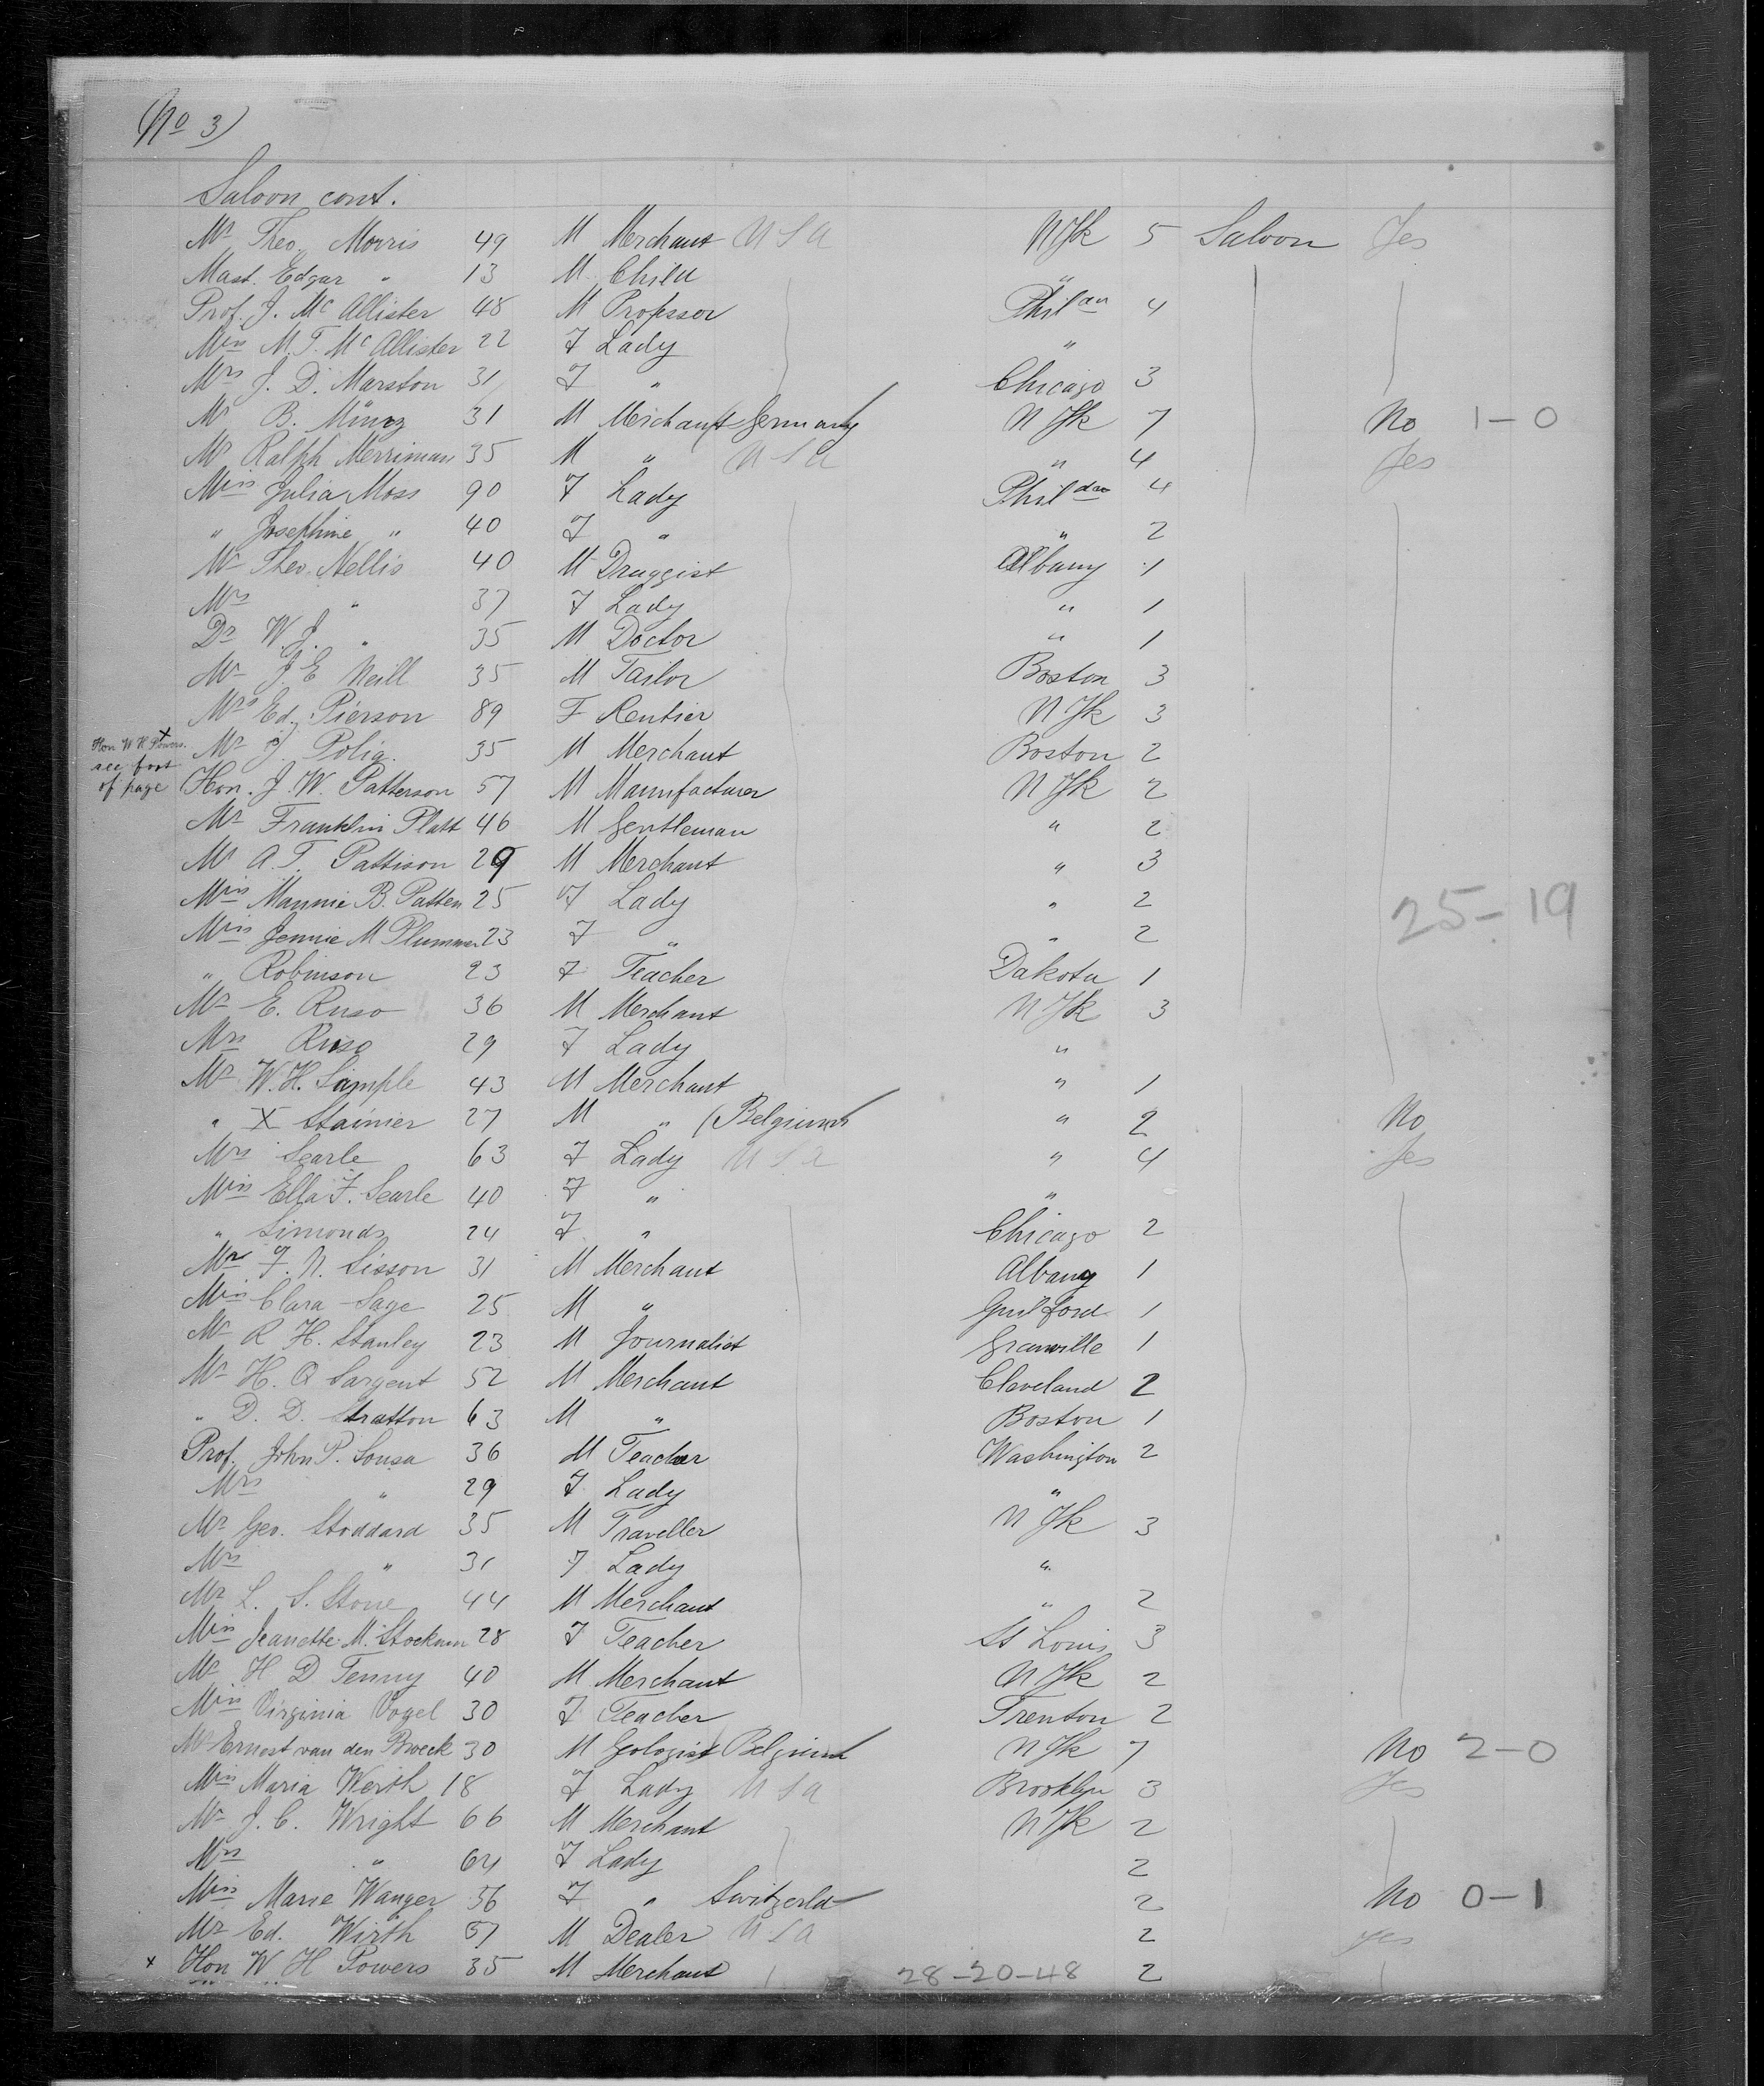 (No 3)
Saloon cont.
Mr Theo. Morris 49 M Merchant U S A N Yk 5 Saloon Yes
Mast. Edgar " 13 M Child "
Prof. J. McAllister 48 M Professor Philda 4
Miss M. T. McAllister 22 F Lady "
Mrs J. D. Marston 31 F " Chicago 3
Mr B. Münz 31 M Merchant Germany N Yk 7 No 1-0
Mr Ralph Merriman 35 M " U S A " 4 Yes
Miss Julia Moss 90 F Lady Philda 4
" Josephine " 40 F " " 2
Mr Theo. Nellis 40 M Druggist Albany 1
Mrs " 37 F Lady " 1
Dr W. J. " 35 M Doctor " 1
Mr J. E Neill 35 M Tailor Boston 3
Mrs Ed. Pierson 89 F Rentier N Yk 3
Hon W H Powers x
see foot
of page
Mr J. 35 M Merchant Boston 2
Hon. J. W. Patterson 57 M Manufacturer N Yk 2
Mr Franklin Platt 46 M Gentleman " 2
Mr A. T. Pattison 29 M Merchant " 3
Miss Mannie B. Patten 25 F Lady " 2
25-19
Miss Jennie M Plummer 23 F " " 2
" Robinson 23 F Teacher Dakota 1
Mr E. Ruso 36 M Merchant N Yk 3
Mrs Ruso 29 F Lady "
Mr W. H. Sample 43 M Merchant " 1
" X Stainier 27 M " (Belgium " 2 No
Mrs Searle 63 F Lady U S A " 4 Yes
Miss Ella F. Searle 40 F " "
" Simonds 24 F " Chicago 2
Mr F. N. Sisson 31 M Merchant Albany 1
Miss Clara Sage 25 M " Guilford 1
Mr R H. Stanley 23 M Journalist Granville 1
Mr H. Q Sargent 52 M Merchant Cleveland 2
" D. D. Stratton 63 M " Boston 1
Prof. John P. Sousa 36 M Teacher Washington 2
Mrs " 29 F Lady "
Mr Geo. Stoddard 35 M Traveller N Yk 3
Mrs " 31 F Lady "
Mr L. S. Stone 44 M Merchant " 2
Miss Jeanette M. Stockum 28 F Teacher St Louis 3
Mr H D Tenny 40 M Merchant N Yk 2
Miss Virginia Vogel 30 F Teacher Trenton 2
Mr Ernest van den Broeck 30 M Geologist Belgium N Yk 7 No 2-0
Miss Maria Werth 18 F Lady U S A Brooklyn 3 Yes
Mr J. C. Wright 66 M Merchant N Yk 2
Mrs " 64 F Lady 2
Miss Marie Wanger 56 F " Switzerld 2 No 0-1
Mr Ed. Wirth 57 M Dealer U S A 2 Yes
x Hon W H Powers 35 M Merchant 28-20-48 2